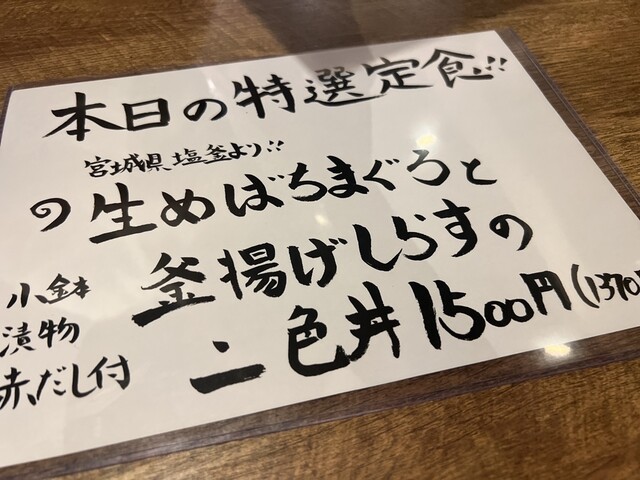 本日の特選定食!!
宮城県塩釜より!!
の生めばちまぐろと
釜揚げしらすの
二色丼 1500円(1370
小鉢
漬物
赤だし付